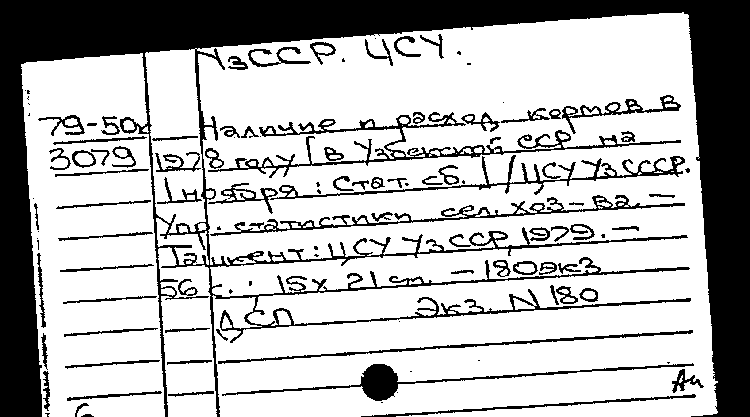 УзССР. ЦСУ.
79-50к Наличие и расход кормов в
3079 1978 году [в Узбекской ССР на
1 ноября: Стат. сб.] / ЦСУ УзСССР.
Упр. статистики сел. хоз-ва. —
Ташкент: ЦСУ УзССР, 1979. —
56 с.; 15х21 см. — 180экз
ДСП Экз. N 180